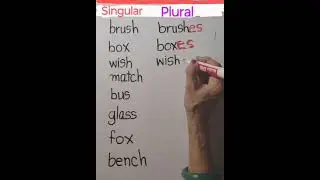 Singular Plural
brush brushes
box boxes
wish wish
match
bus
glass
fox
bench